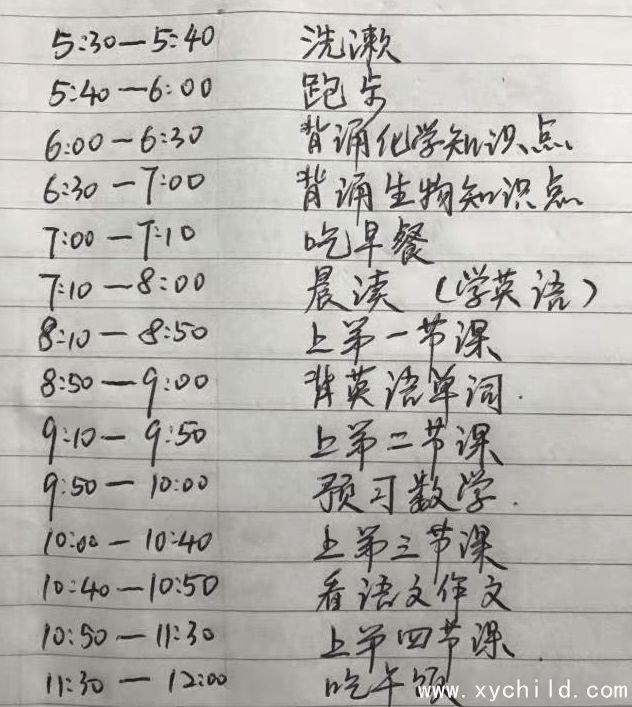 5:30—5:40 洗漱
5:40—6:00 跑步
6:00—6:30 背诵化学知识点
6:30—7:00 背诵生物知识点
7:00—7:10 吃早餐
7:10—8:00 晨读（学英语）
8:10—8:50 上第一节课
8:50—9:00 背英语单词.
9:10—9:50 上第二节课
9:50—10:00 预习数学.
10:00—10:40 上第三节课
10:40—10:50 看语文作文
10:50—11:30 上第四节课
11:30—12:00 吃午饭
www.xychild.com